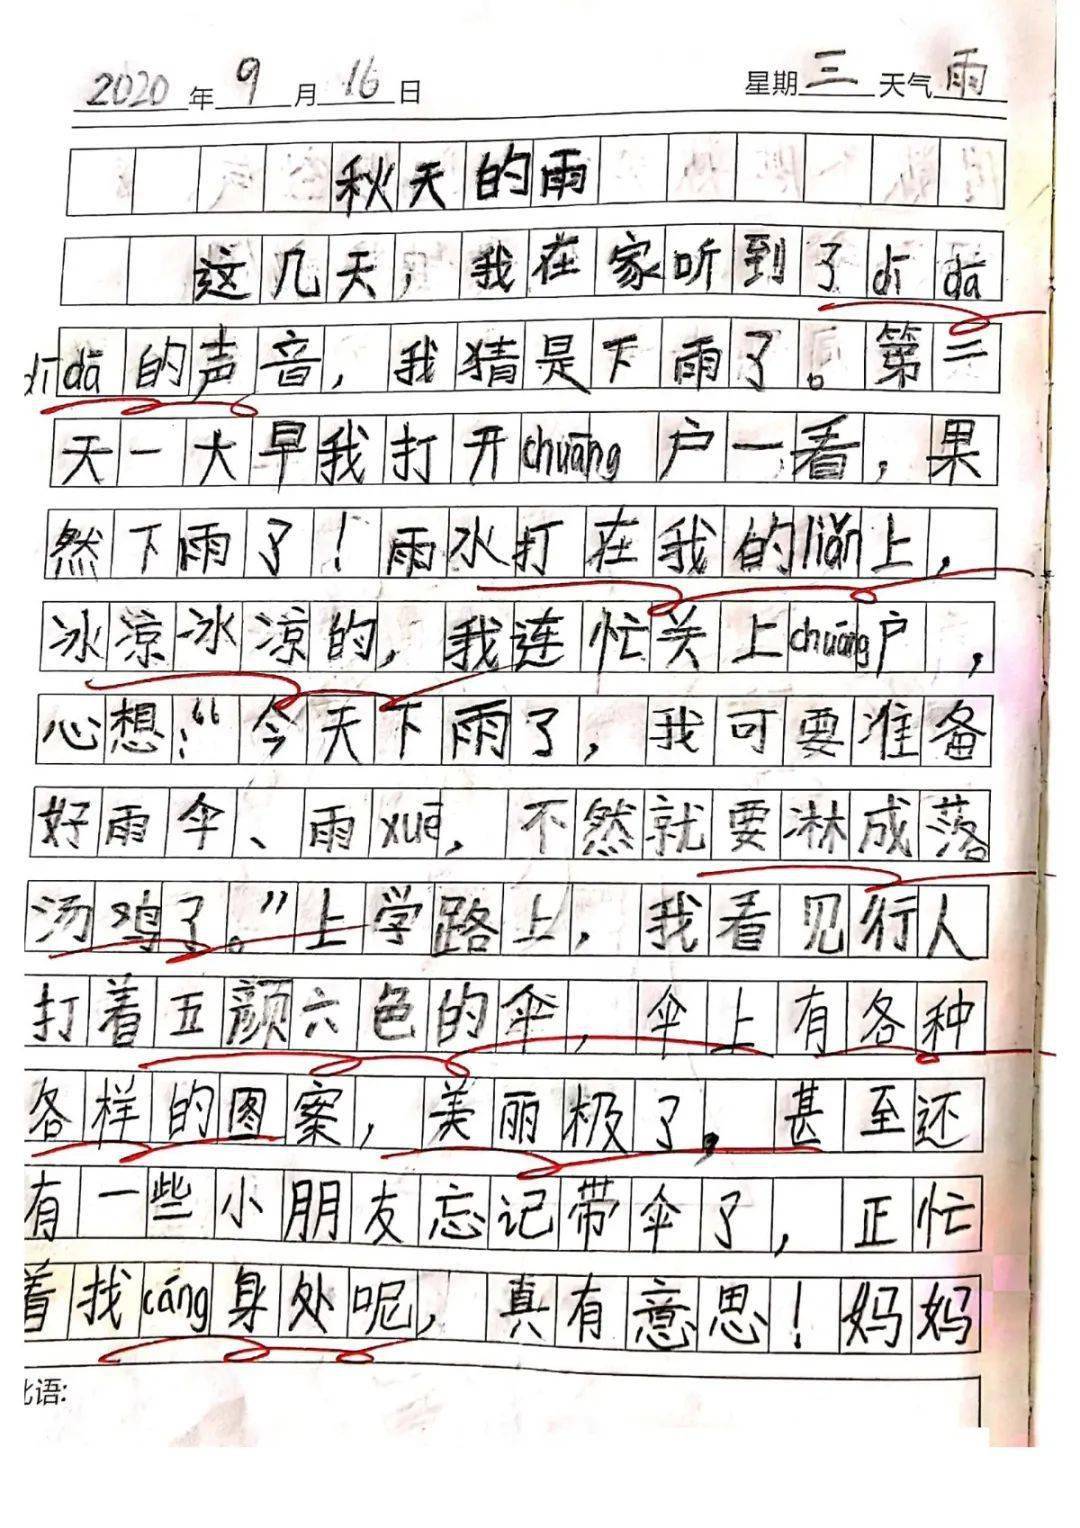 2020年9月16日 星期三 天气雨
秋天的雨
这几天，我在家听到了dī dā
dī dā的声音，我猜是下雨了。第二
天一大早我打开chuāng户一看，果
然下雨了！雨水打在我的liǎn上，
冰凉冰凉的，我连忙关上chuāng户，
心想：“今天下雨了，我可要准备
好雨伞、雨xuē，不然就要淋成落
汤鸡了。”上学路上，我看见行人
打着五颜六色的伞，伞上有各种
各样的图案，美丽极了，甚至还
有一些小朋友忘记带伞了，正忙
着找cáng身处呢，真有意思！妈妈
批语: